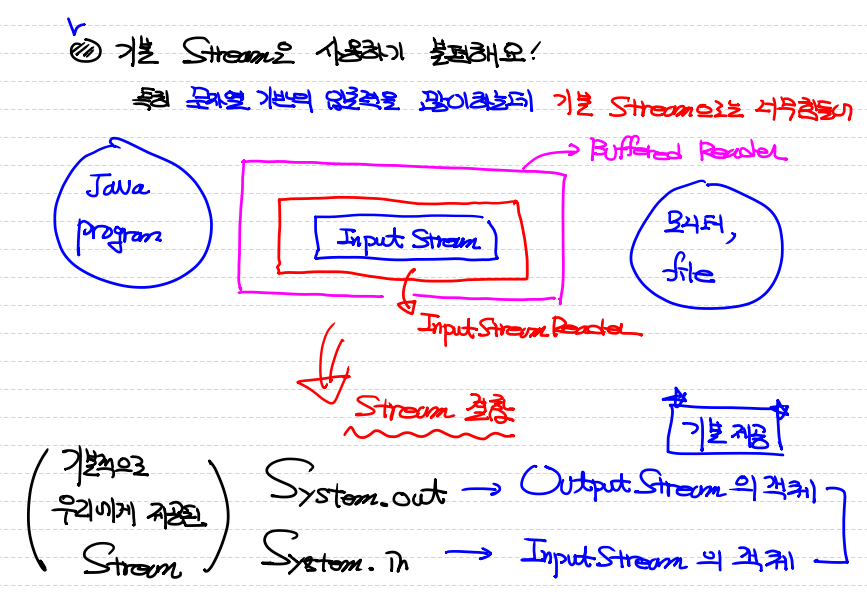 기본 Stream은 사용하기 불편해요!
특히 문자열 기반의 입출력을 많이하는데 기본 Stream으로는 너무힘들어
Buffered Reader
Java
program
Input Stream
모니터,
file
InputStreamReader
Stream 결합
기본 제공
기본적으로
우리에게 제공된
Stream
System.out → OutputStream의 객체
System.in → InputStream의 객체